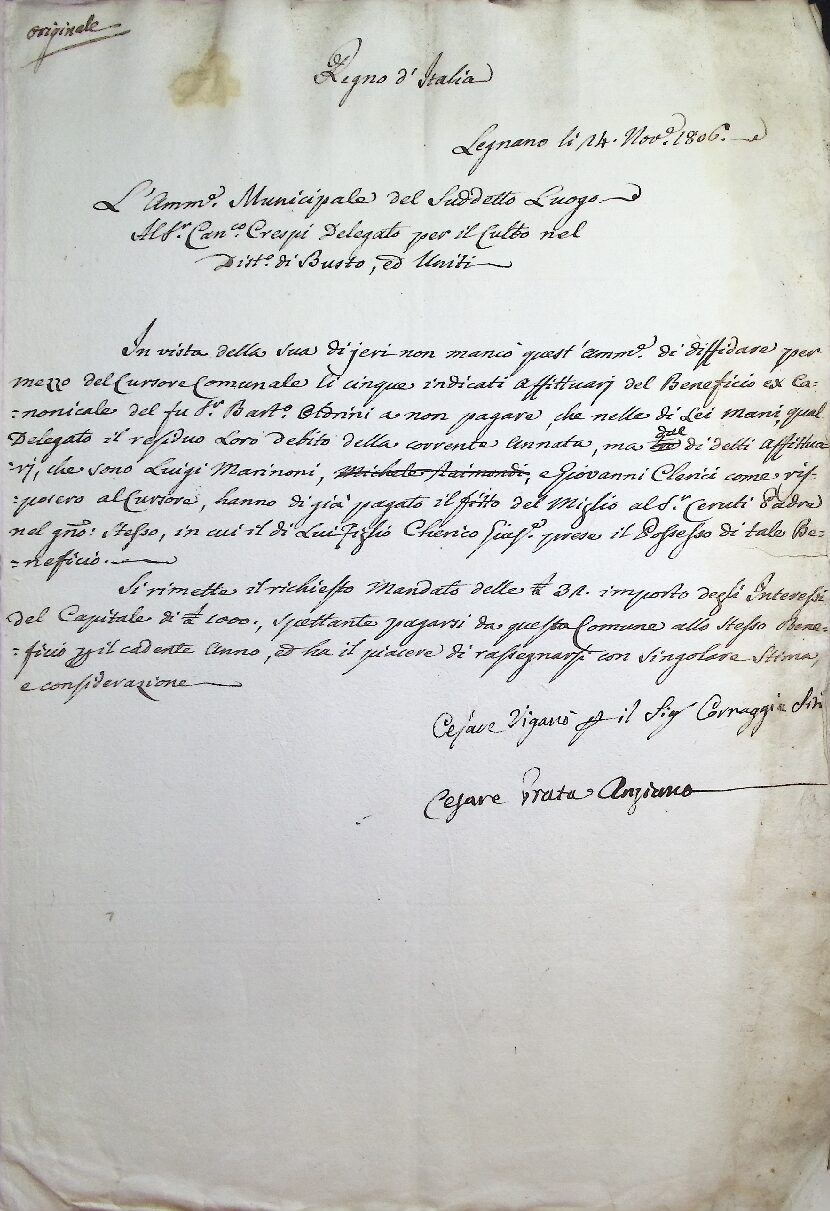 Originale
Regno d'Italia
Legnano li 14. Nov.e 1806.
L'Amm.e Municipale del Suddetto Luogo
Al S.r Can.co Crespi Delegato per il Culto nel
Dist.o di Busto, ed Uniti
In vista della sua di jeri non mancò quest'Amm.e di diffidare per
mezzo del Cursore Comunale li cinque indicati Affittuarj del Beneficio ex Ca-
=nonicale del fu S.r Bart.o a non pagare, che nelle di Lei mani, qual
Delegato il residuo Loro debito della corrente Annata, ma due di detti Affittua-
=rj, che sono Luigi Marinoni, Michele Raimondi, e Giovanni Clerici come ris-
=posero al Cursore, hanno di già pagato il fitto del Miglio al S.r Ceruti Padre
nel gno: stesso, in cui il di Lui Figlio Cherico Gias.e prese il Possesso di tale Be-
=neficio.
Si rimette il richiesto Mandato delle £ 32. importo degli Interessi
del Capitale di £ 1000., spettante pagarsi da questa Comune allo stesso Bene-
=ficio p il cadente Anno, ed ha il piacere di rassegnarsi con singolare Stima,
e considerazione
Cesare Viganò p il Sig.r Corraggia
Cesare Prata Anziano